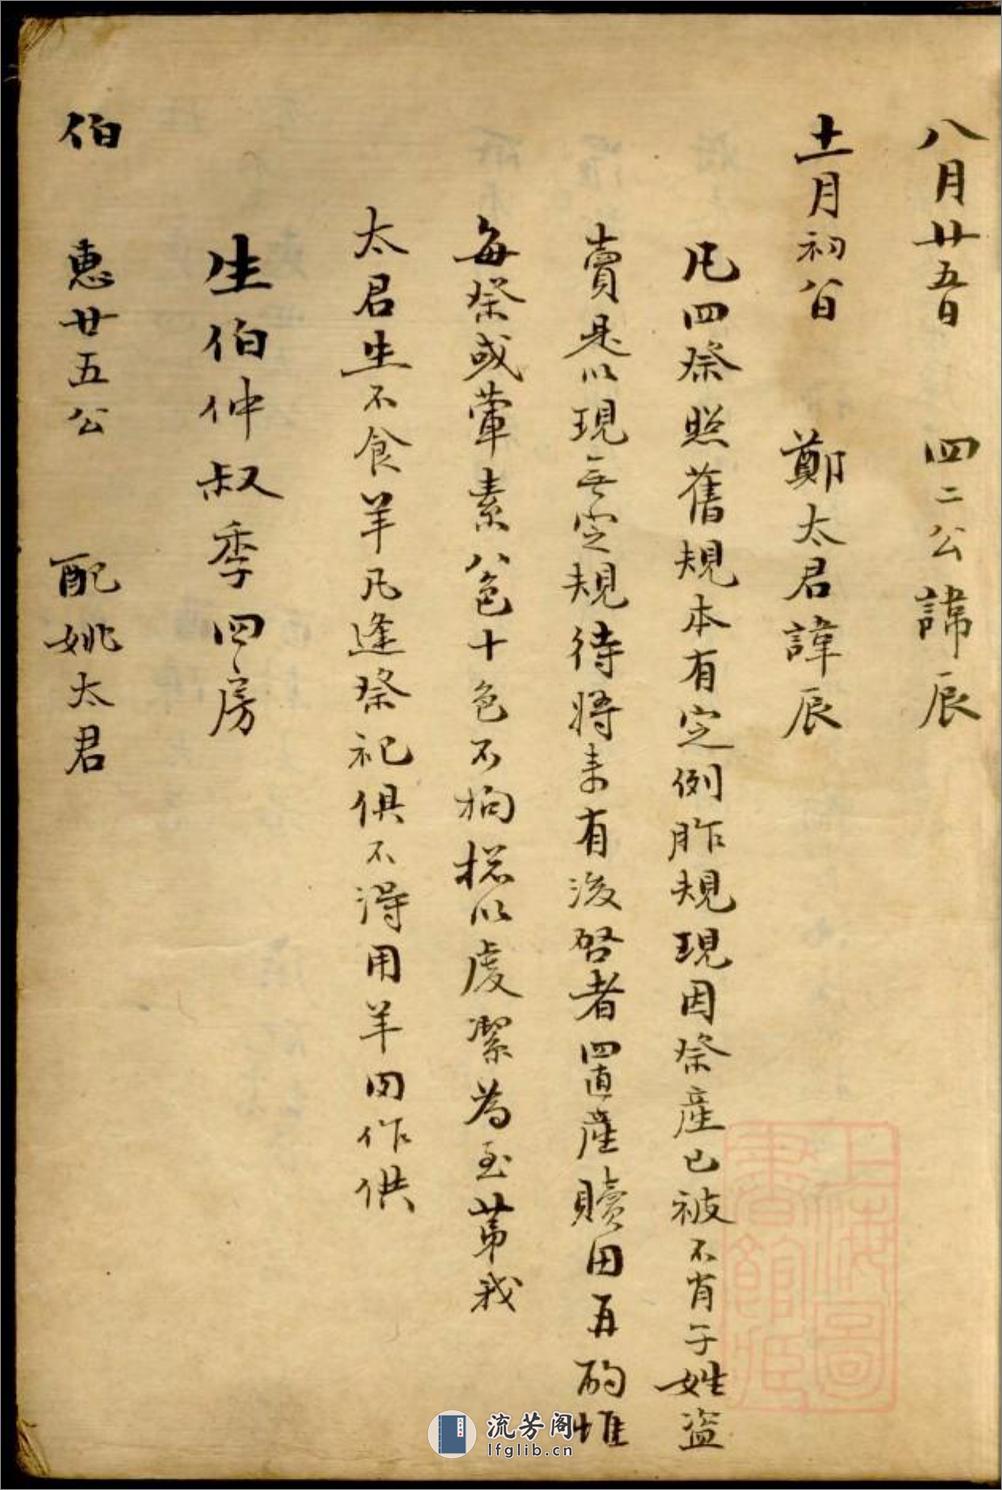 八月廿五日 四二公諱辰
十一月初八日 鄭太君諱辰
凡四祭照舊規本有定例昨規現因祭產已被不肖子姓盗
賣是以現無定規待將来有後啓者置產贖田再酌惟
每祭或葷素八色十色不拘揔以虔潔為至苐我
太君生不食羊凡逢祭祀俱不淂用羊肉作供
生伯仲叔季四房
伯 惠廿五公 配姚太君
上海圖書館藏
流芳阁
lfglib.cn